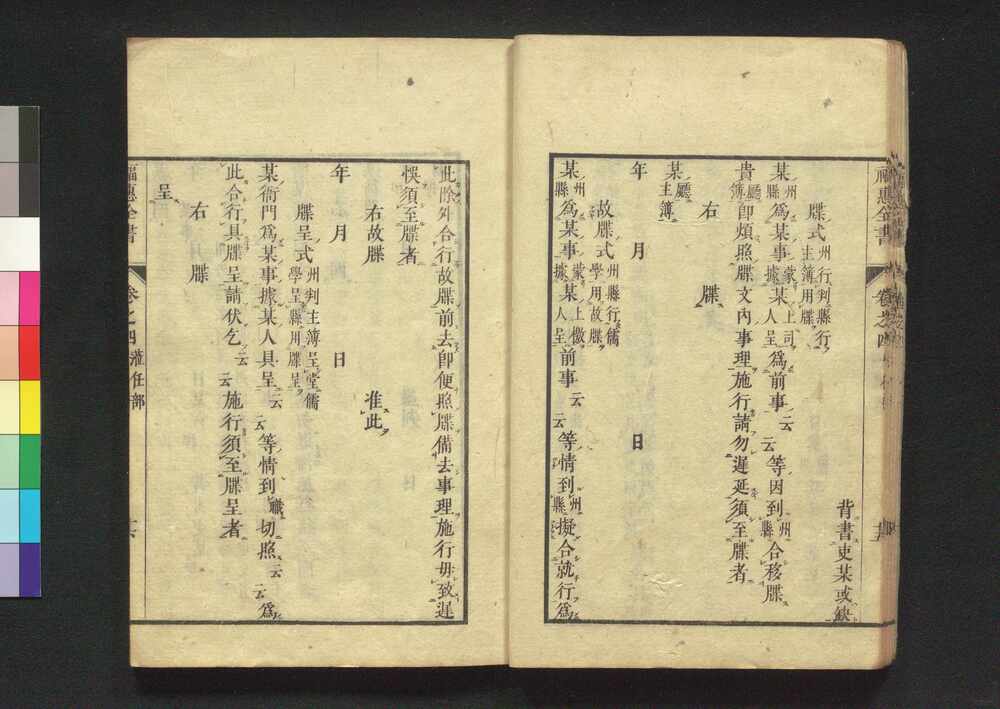 背書吏某或缺
牒式 州行判縣行主簿用牒
某州縣為某事據蒙某上司人呈為前事云云等因到州縣合移牒
貴廳簿即煩照牒文內事理施行請勿遲延須至牒者
右　牒
某廳主簿
年　月　日
故牒式 州縣行儒學用故牒
某州縣為某事據蒙某上檄人呈前事云云等情到州縣擬合就行為
此除外合行故牒前去即便照牒備去事理施行毋致遲
悞須至牒者
右故牒　准此
年　月　日
牒呈式 州判主簿呈堂儒學呈縣用牒呈
某衙門為某事據某人具呈云云等情到職切照云云為
此合行具牒呈請伏乞云云施行須至牒呈者
右　牒
呈
福惠全書　卷之四 蒞任部　十六